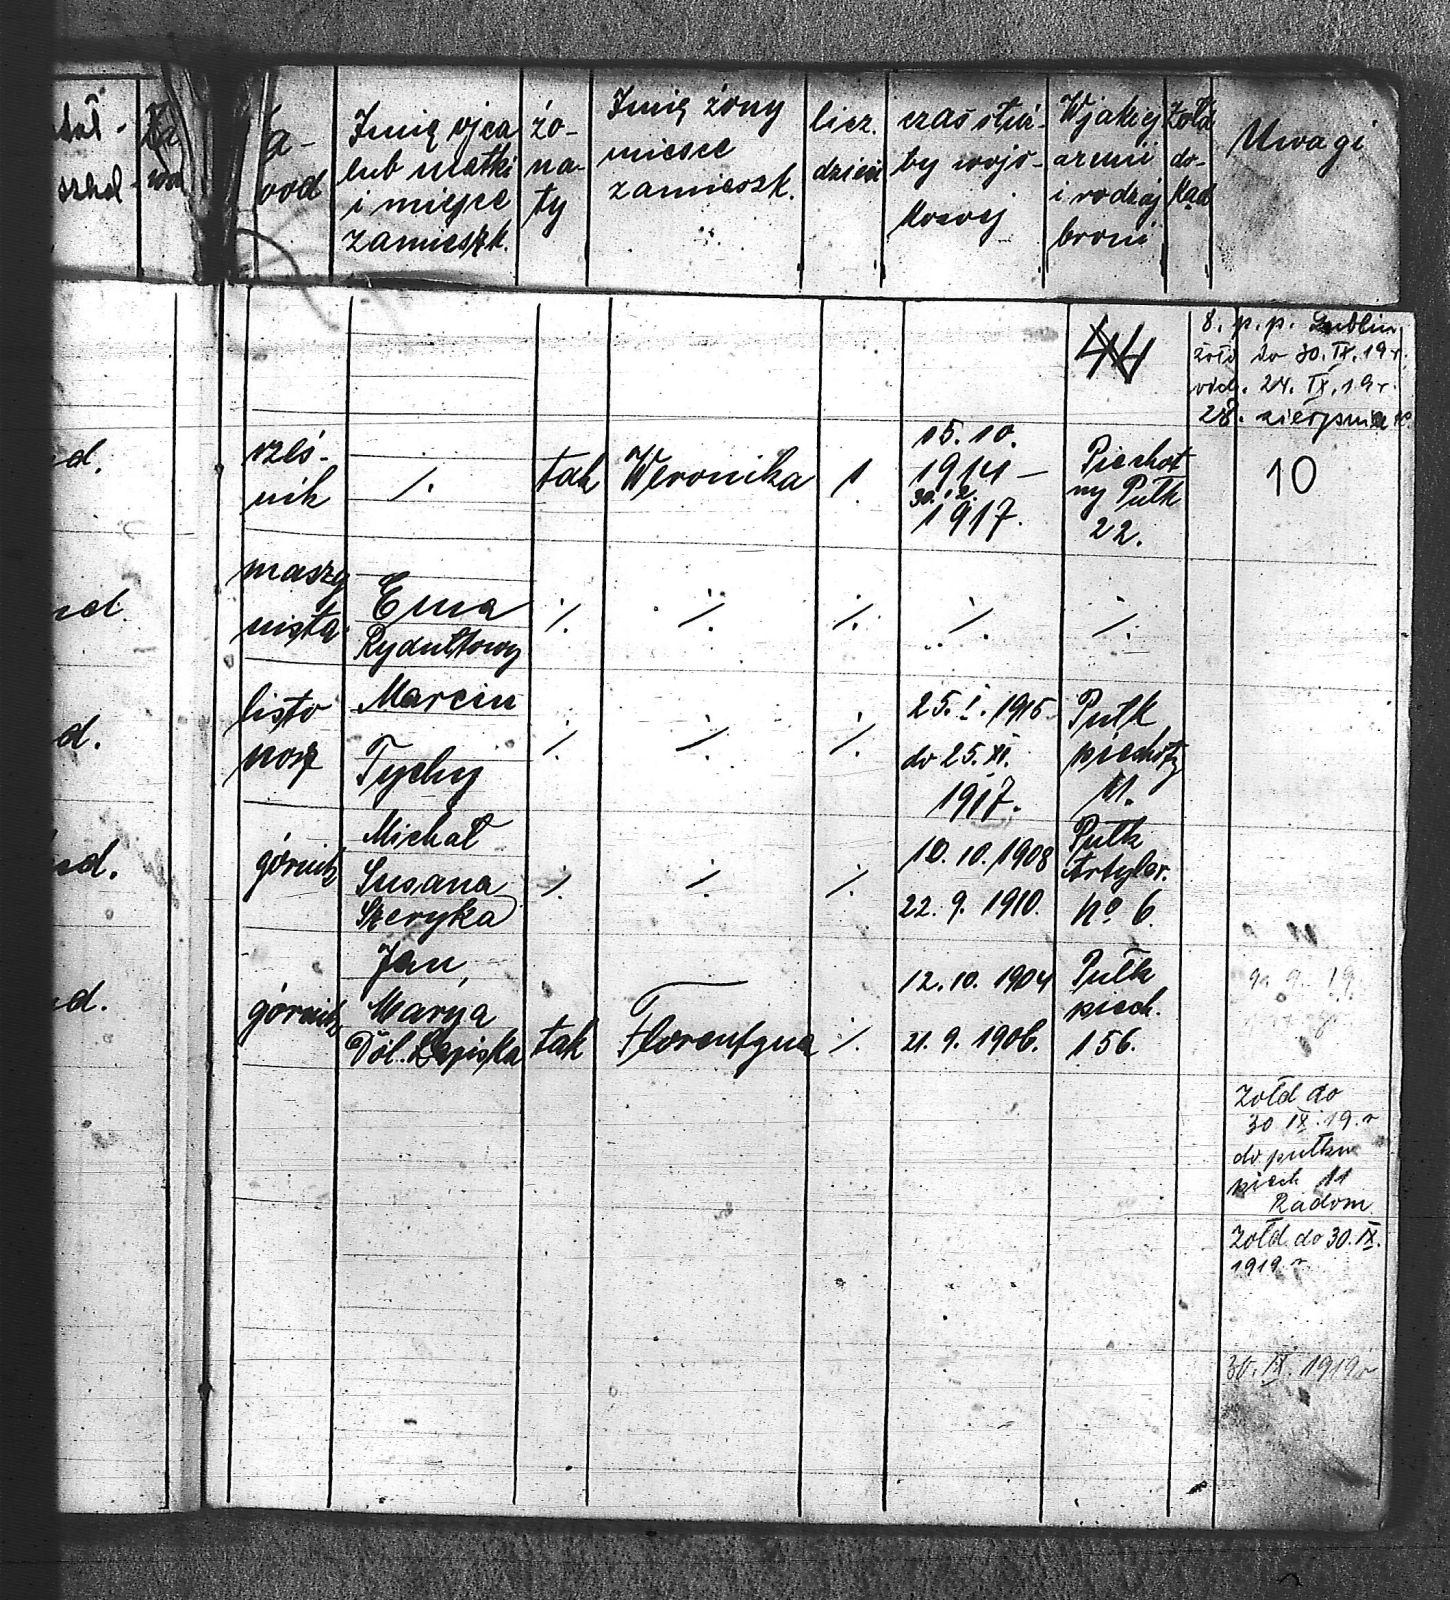 Imię ojca
lub matki
i miejsce
zamieszk.
żo-
na-
ty
Imię żony
miesce
zamieszk.
licz.
dzieci
czas służ-
by wojs-
kowej
W jakiej
armji
i rodzaj
broni
Żołd
do-
kąd
Uwagi
8. p.p. Lublin
żołd do 30. IX. 19 r.
24. IX. 19 r.
28. sierpnia
rzeź-
nik
./.
tak
Weronika
1
15. 10.
1914 –
30. 12.
1917.
Piechot
ny Pułk
22.
10
maszy
nista
Ema
Rydułtowy
./.
./.
./.
./.
./.
listo
nosz
Marcin
Tychy
./.
./.
./.
25. I. 1915
do 25. XI.
1917.
Pułk
piechoty
11.
górnik
Michał
Susana
Szeryka
./.
./.
./.
10. 10. 1908
22. 9. 1910.
Pułk
Artyler.
No 6.
górnik
Jan,
Marija
Dol.
tak
Florentyna
./.
12. 10. 1904
21. 9. 1906.
Pułk
piech.
156.
Żołd do
30 IX. 19. r
do pułku
piech 11
Radom
Żołd do 30. IX.
1919 r
30. IX. 1919 r